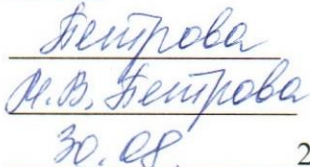 Петрова
М.В. Петрова
30.08. 2